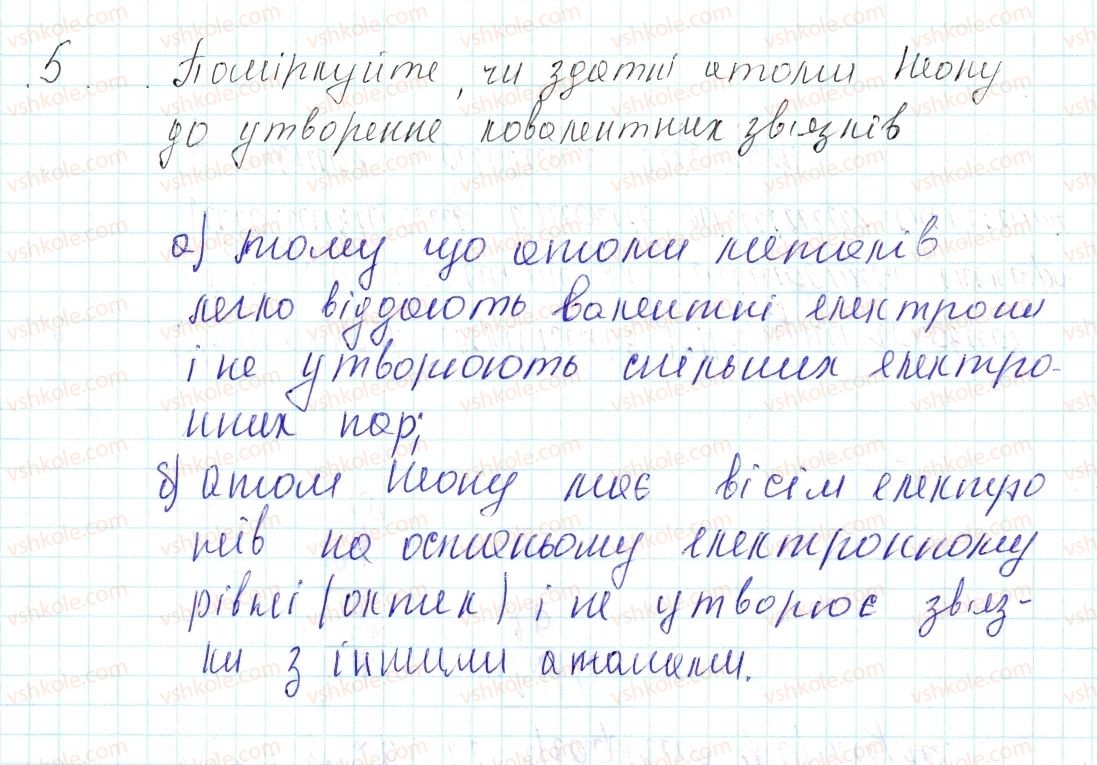 5 Поміркуйте, чи здатні атоми Неону
до утворенне ковалентних звязків
а) тому що атоми металів
легко віддають валентні електрони
і не утворюють спільних електро-
нних пар;
б) атом Неону має вісім електро
нів на останьому електронному
рівні (октек) і не утворює звяз-
ки з іншими атомами.